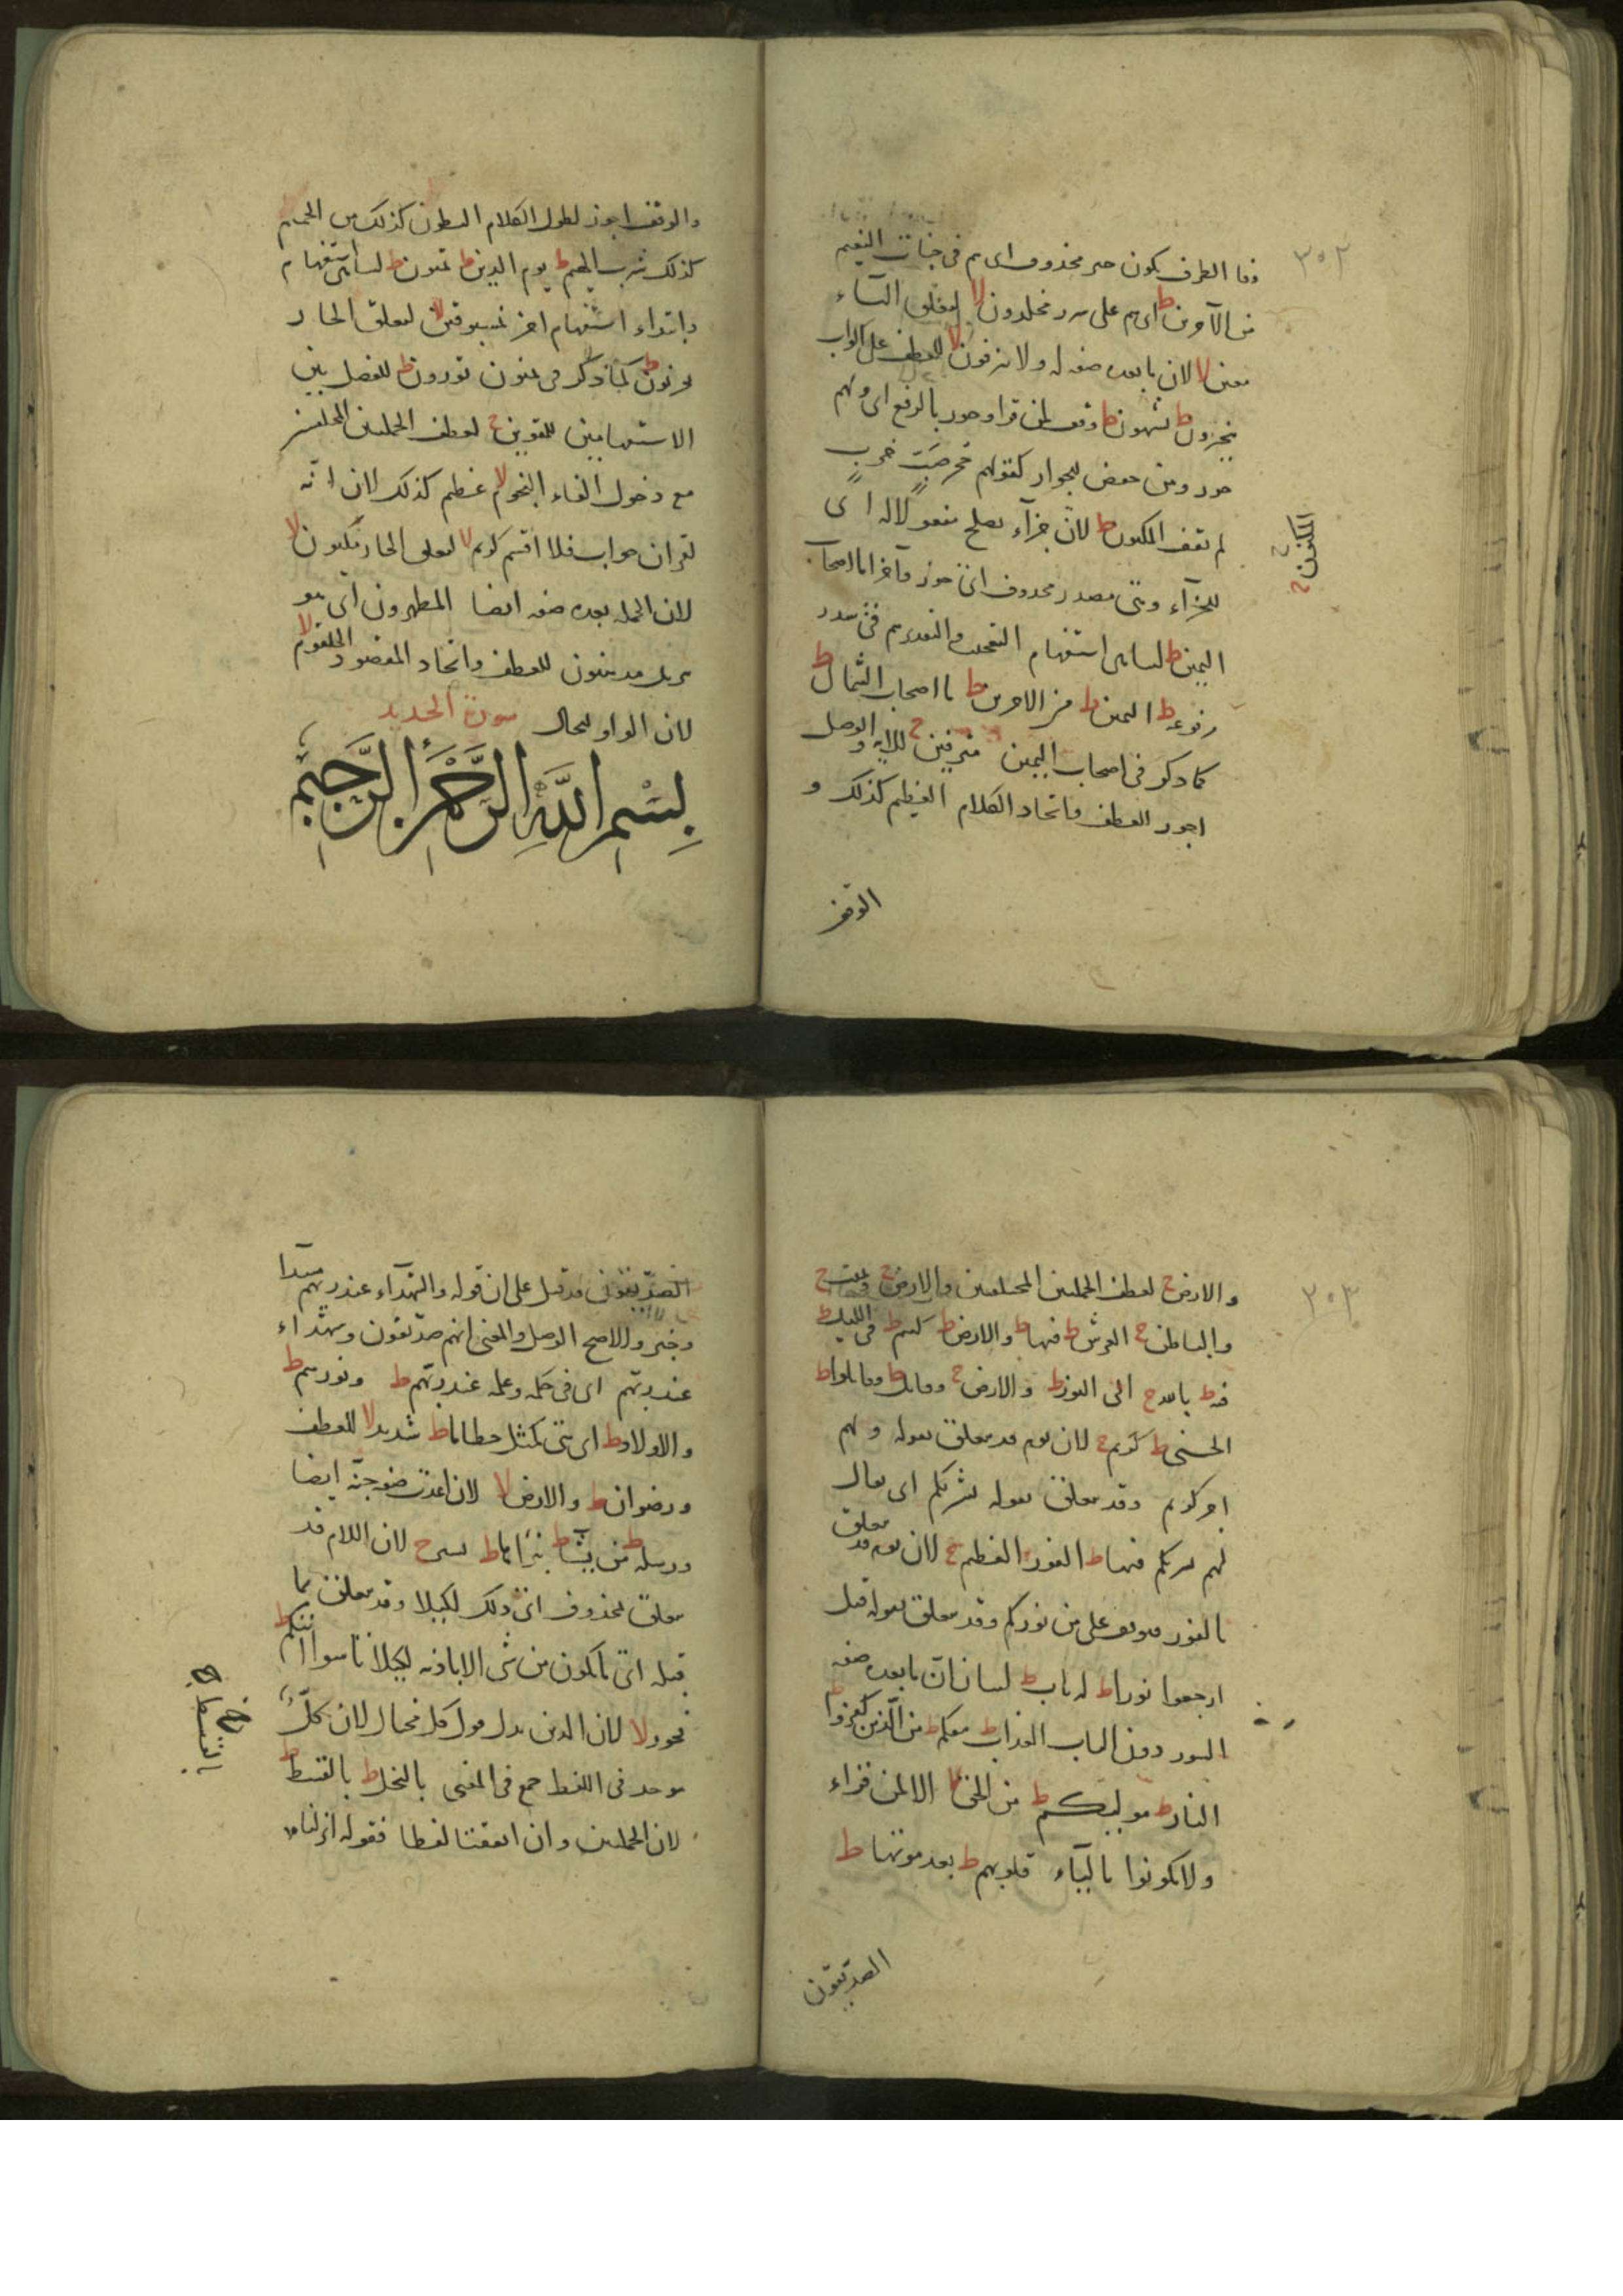 ٣٠٢
وقفا الظرف يكون خبر محذوف اى هم فى جنات النعيم
من الآخرين ط اى هم على سرر مخلدون لا لتعلق الباء
معين لا لان ما بعده صفه له ولا ينزفون لا للعطف على اكواب
يتخيرون ط يشتهون ط وقف لمن قرا وحور بالرفع اى ولهم
حور ومن خفض للجوار كقولهم جحر ضب خرب
لم يقف المكنون ط لان جزآء يصلح مفعولا له اى
للجزآء وعلى مصدر محذوف اى جوزوا جزآء اصحاب
اليمين ط لتناهى استفهام التعجب والتقدير هم فى سدر
مرفوعه ط اليمين ط من الاخرين ط ما اصحاب الشمال ط
كما ذكر فى اصحاب اليمين مترفين ج للآيه والوصل
اجوز للعطف واتحاد الكلام العظيم كذلك و
المكنون ج
الوقف
والوقف اجوز لطول الكلام البطون كذلك من الحميم
كذلك شرب الهيم ط يوم الدين ط تمنون ط لتناهى استفهام
وابتداء استفهام اخر بمسبوقين لا لتعلق الجار
تورون ط للفصل بين
الاستفهامين للمقوين ج لعطف الجملتين المختلفتين
مع دخول الفاء النجوم لا عظيم كذلك لان انه
لقران جواب فلا اقسم كريم لا لتعلق الجار مكنون لا
لان الجمله بعده صفه ايضا المطهرون اى هو
تنزيل مدهنون للعطف واتحاد المقصود الحلقوم لا
لان الواو للحال سورة الحديد
بسم الله الرحمن الرحيم
٣٠٣
والارض ج لعطف الجملتين المختلفتين والارض ج
والباطن ج العرش ط فيها ط والارض ط كنتم ط فى الليل ط
فيه ط بالله ج الى النور ط والارض ج وقاتل ط وقاتلوا ط
الحسنى ط كريم ج لان يوم قد يتعلق بقوله ولهم
اجر كريم وقد يتعلق بقوله بشريكم اى يقال
لهم بشريكم فيها ط الفوز العظيم ج لان يوم قد يتعلق
بالفوز فيوقف على من نوركم وقد يتعلق بقوله قيل
ارجعوا نورا ط له باب ط لبيان ان ما بعده صفه
السور دون الباب العذاب ط معكم ط من الذين كفروا ط
النار ط موليكم ط من الحق لا الا لمن قراء
ولا تكونوا بالتاء قلوبهم ط بعد موتها ط
الصديقون
الصديقون قد قيل على ان قوله والشهدآء عند ربهم مبتدا
وخبر والاصح الوصل والمعنى انهم صديقون وشهداء
عند ربهم اى فى حكمه وعلمه عند ربهم ط ونورهم ط
والاولاد ط اى هى كمثل حطاما ط شديد لا للعطف
ورضوان ط والارض لا لان اعدت صفه جنه ايضا
ورسله ط من يشآ ط نبراها ط يسير ج لان اللام قد
يتعلق بمحذوف اى ذلك لكيلا وقد يتعلق بما
قبله اى لا يكون من شى الا باذنه لكيلا تاسوا اتيكم ط
فخور لا لان الذين بدل قول كل مختال لان كل
موحد فى اللفظ جمع فى المعنى بالبخل ط بالقسط ط
لان الجملتين وان اتفقتا لفظا فقوله انزلنا
بالقسط ج